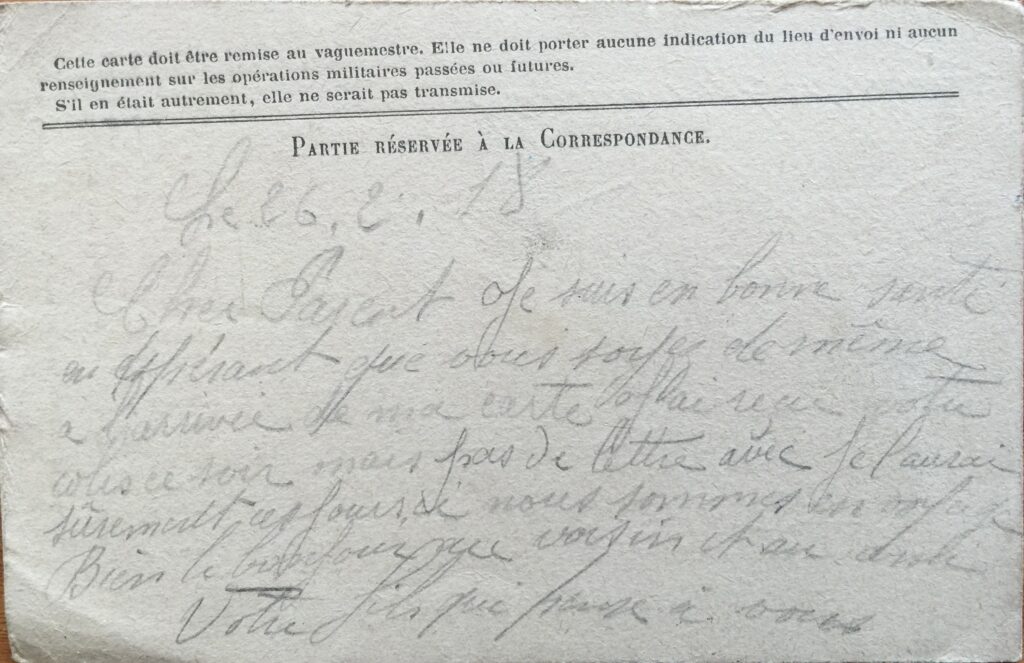 Cette carte doit être remise au vaguemestre. Elle ne doit porter aucune indication du lieu d'envoi ni aucun
renseignement sur les opérations militaires passées ou futures.
S'il en était autrement, elle ne serait pas transmise.
PARTIE RÉSERVÉE À LA CORRESPONDANCE.
Le 26, 2, 18
Cher Parent Je suis en bonne santé
en espérant que vous soyez de même
a l'arrivée de ma carte J'ai reçu votre
colis ce soir mais pas de lettre avec Je l'aurai
sûrement ces jours ci nous sommes en
Bien le bonjour voisin et au ami
Votre fils qui pense à vous